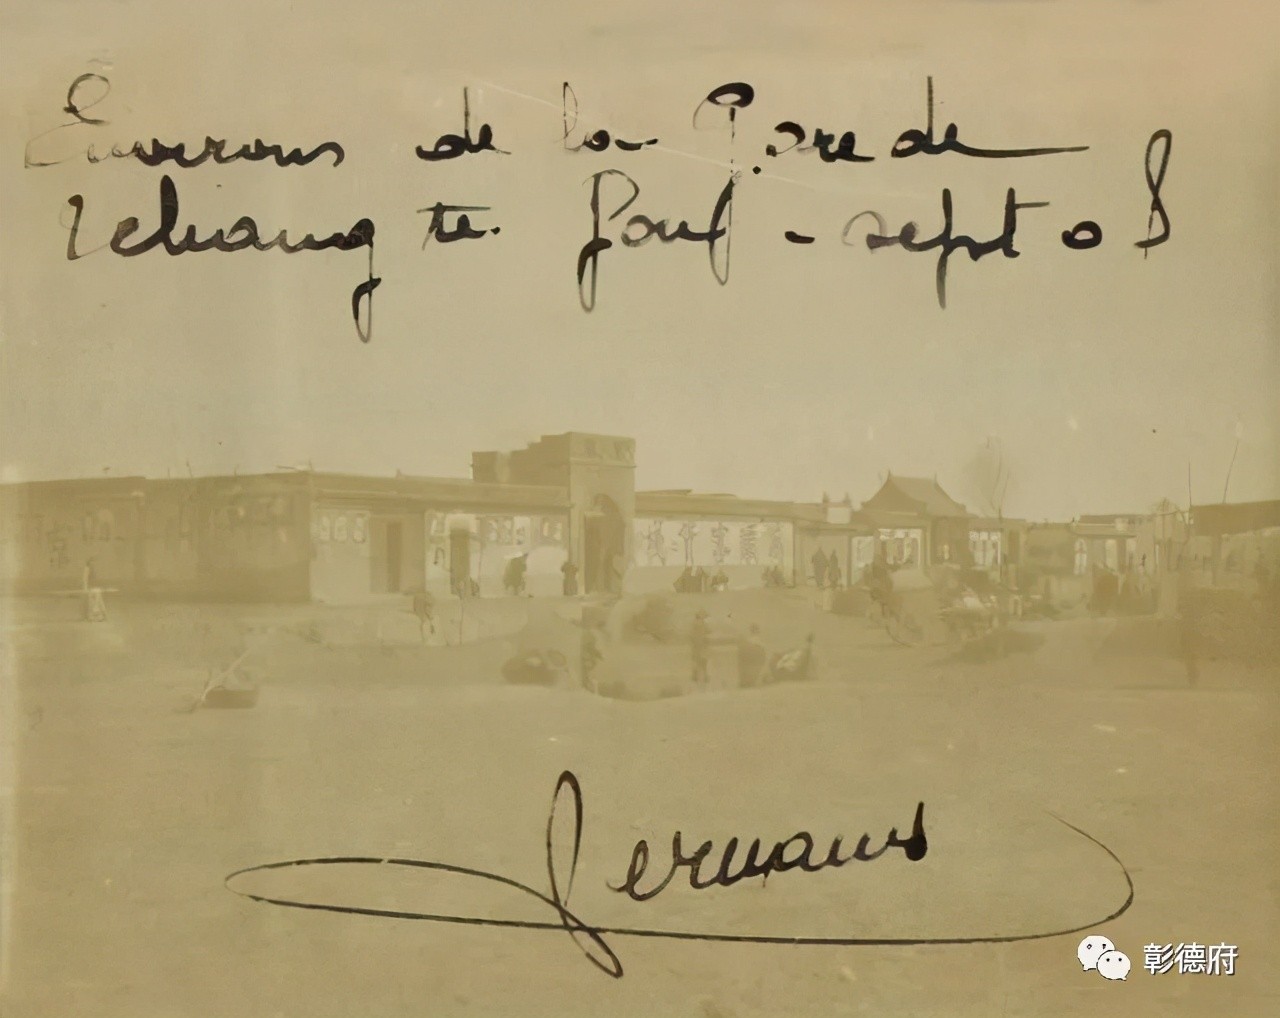 Environs de la Gare de
Tchang te. Fou - sept 08
Germans
彰德府